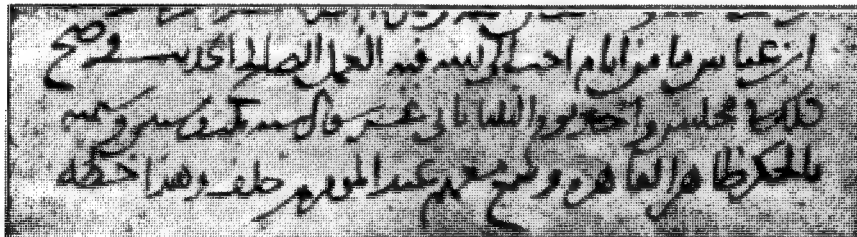 ابن عباس ما من ايام احب الى الله فيه العمل الصالح الحديث وصح
ذلك في مجلس واحد يوم الثلثا ثاني عشر وستميه
بالحكر ظاهر القاهره وسمع معهم عبد المومن بن خلف وهذا خطه